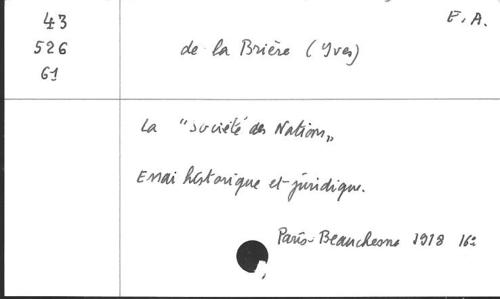 43
526
61
E, A.
de la Brière (Yves)
La "société des Nations„
Essai historique et juridique.
Paris-Beauchesne 1918 16º